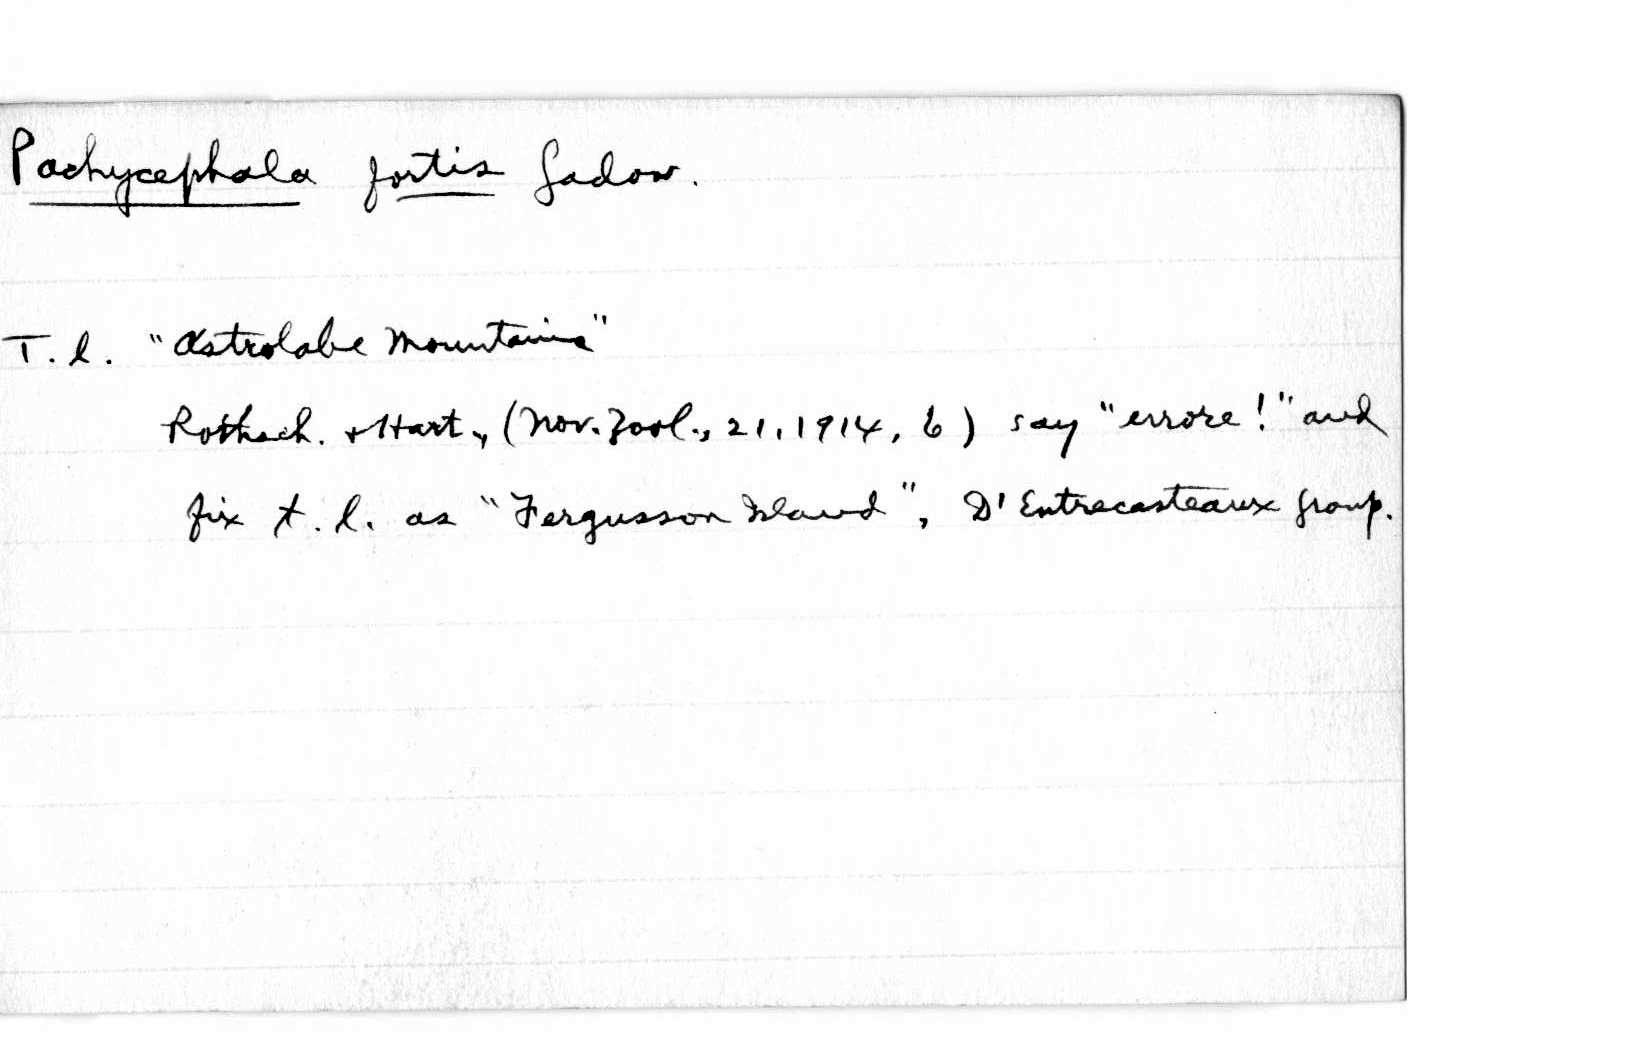 Pachycephala fortis Gadow.
T. l. "Astrolabe Mountains"
Rothsch. + Hart., (Nov. Zool., 21, 1914, 6) say "errore!" and
fix t. l. as "Fergusson Island", D'Entrecasteaux Group.